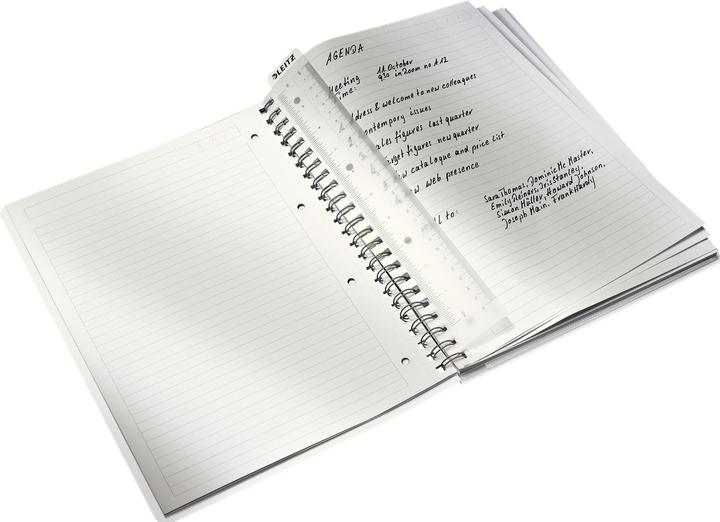 LEITZ
AGENDA
Meeting 11. October
Time: 930 in Zoom no A12
dress & welcome to new colleagues
ontempory issues
ales figures last quarter
arget figures new quarter
w catalogue and price list
w web presence
ll to:
Sara Thomas, Dominic Mc Master,
Emily Deiners, Iris Stanley,
Simon Müller, Howard Johnson,
Joseph Main, Frank Hardy